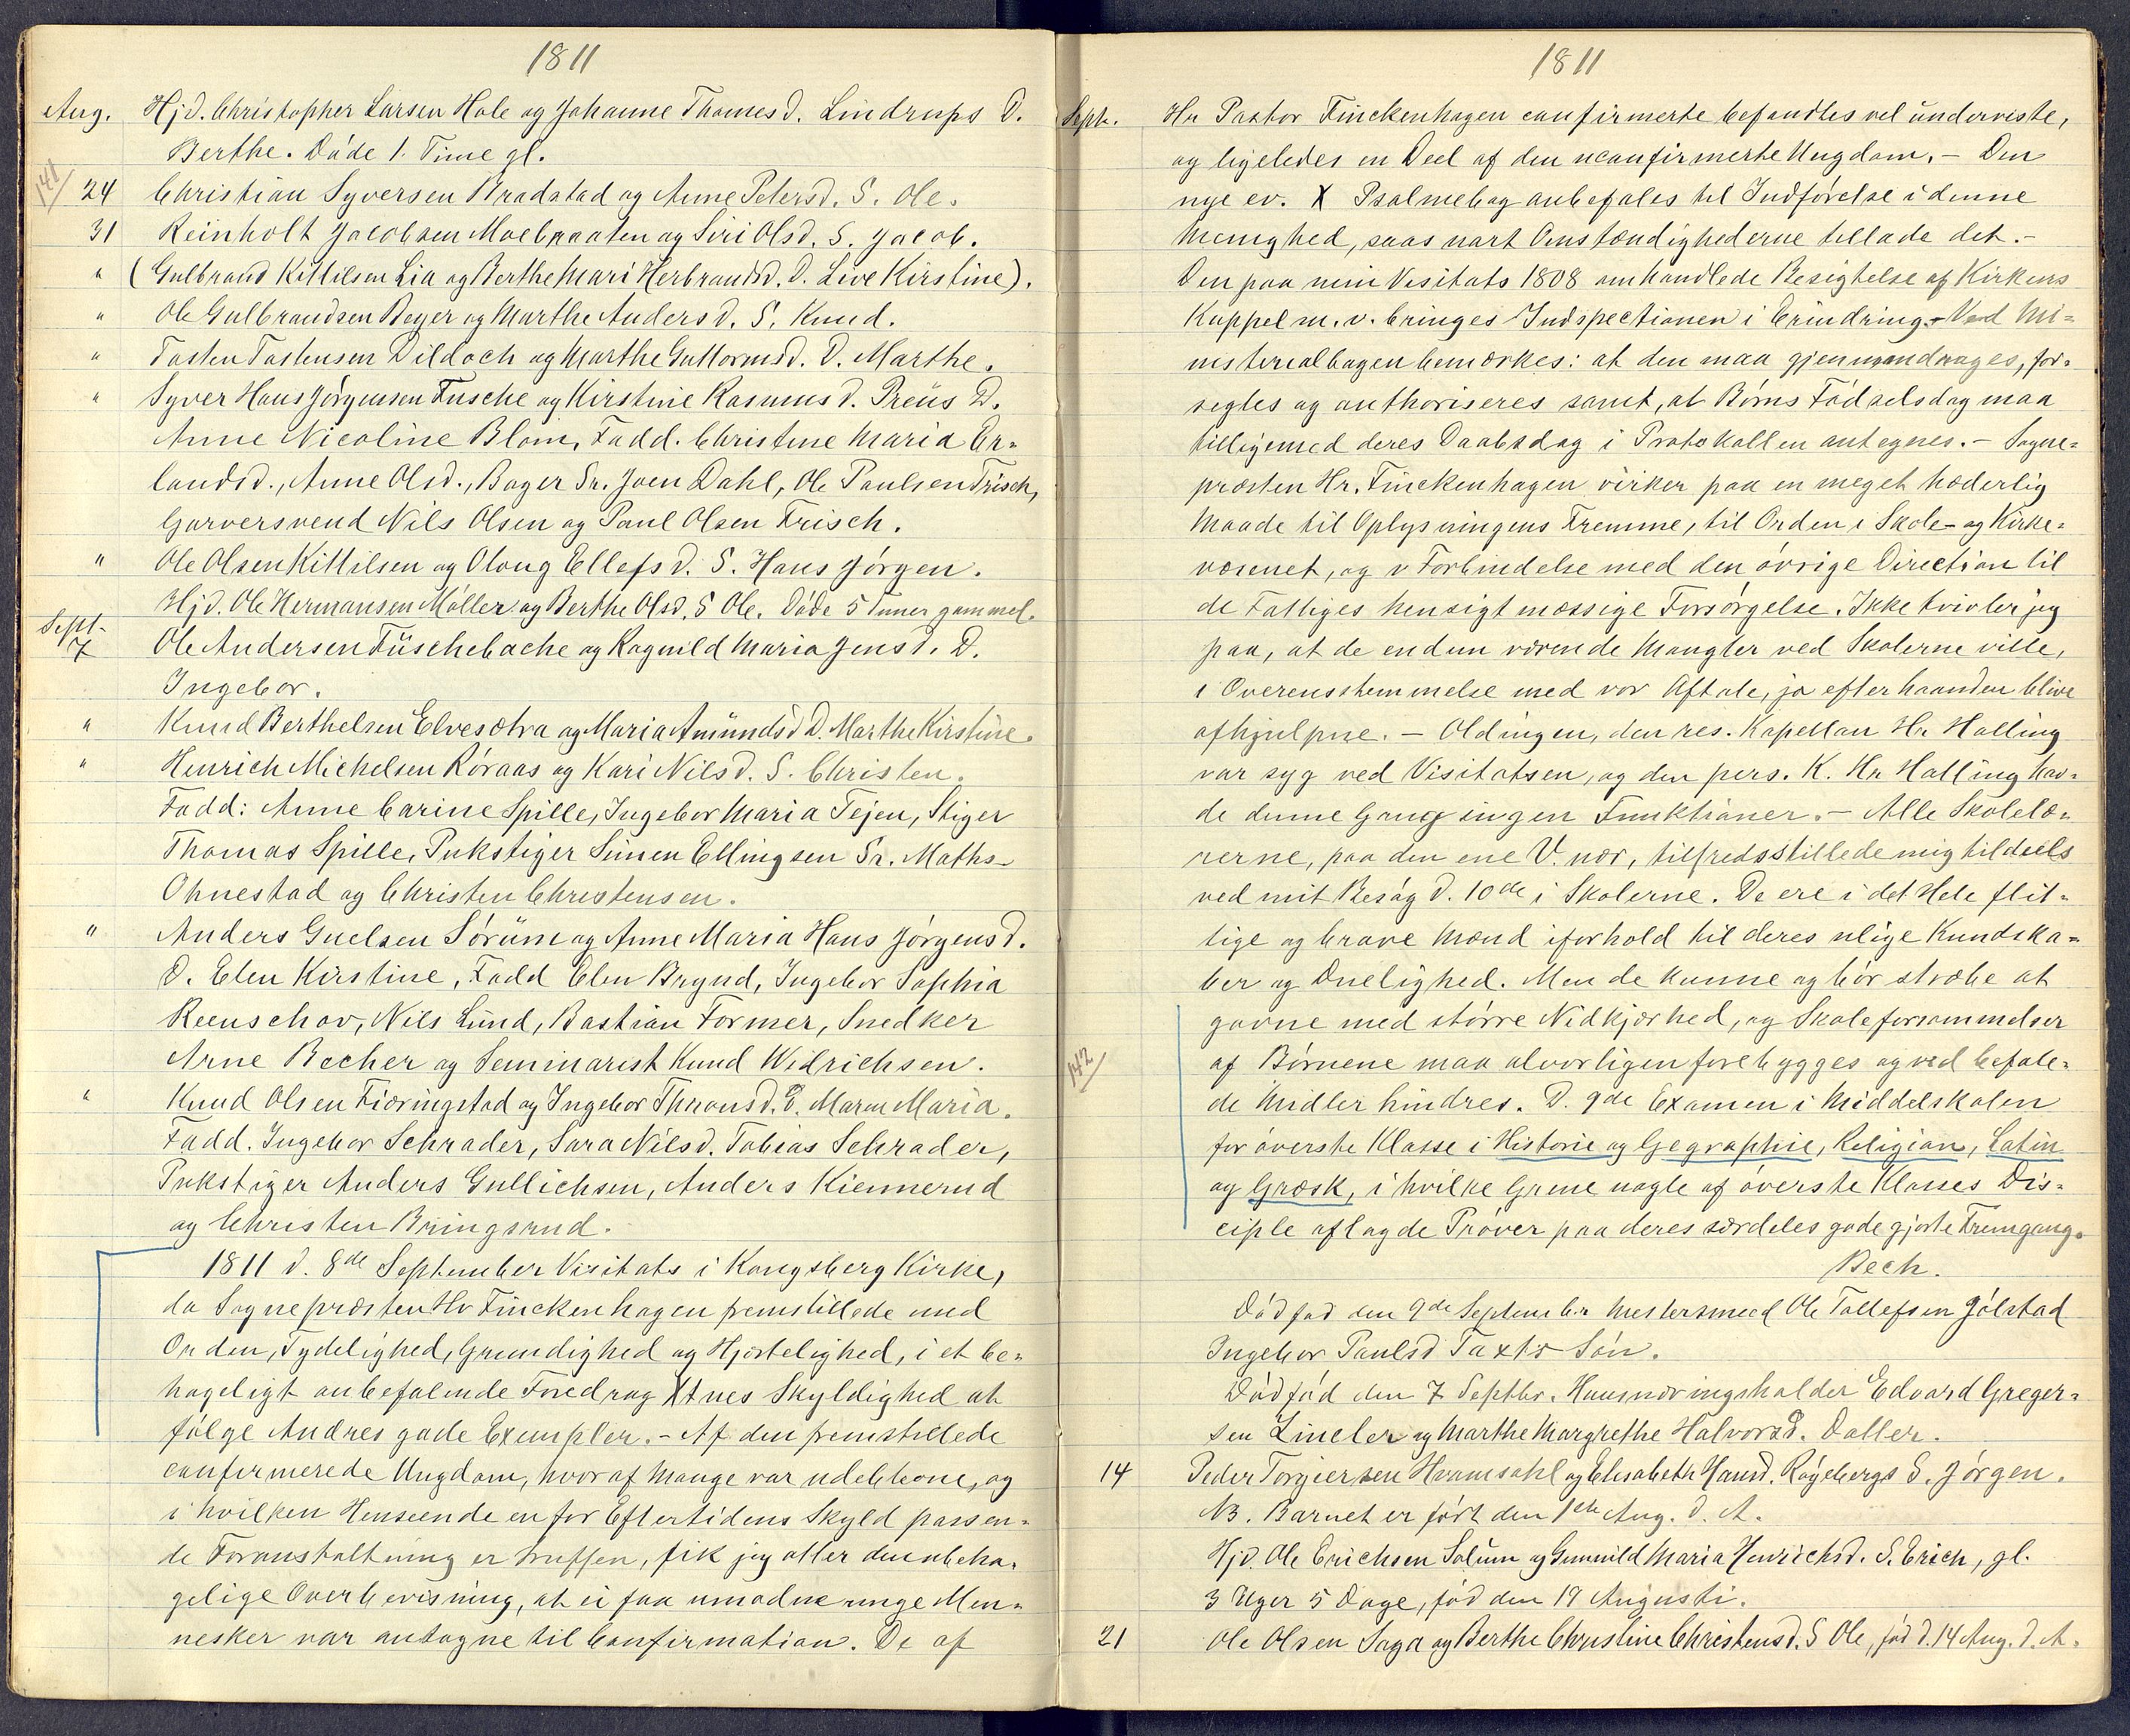 1811
Aug. Hjd. Christopher Larsen Hole og Johanne Thomesd. Lindrups D.
Berthe. Døde 1. Time gl.
141
24 Christian Syversen Bradstad og Anne Petersd. S. Ole.
31 Reinholt Jacobsen Moebraaten og Siri Olsd. S. Jacob.
" (Gulbrand Kittilsen Lia og Berthe Mari Herbrandsd. D. Live Kirstine).
" Ole Gulbrandsen Beyer og Marthe Andersd. S. Knud.
" Tosten Tostensen Dildoch og Marthe Guttormsd. D. Marthe.
" Syver Hans Jørgensen Fusche og Kirstine Rasmusd. Preüs D.
Anne Nicoline Blom, Fadd. Christine Maria Er-
landsd., Anne Olsd., Bager Sr. Joen Dahl, Ole Paulsen Frisch,
Garversvend Nils Olsen og Paul Olsen Frisch.
" Ole Olsen Kittilsen og Oloug Ellefsd. S. Hans Jørgen.
Hjd. Ole Hermansen Møller og Berthe Olsd. S Ole. Døde 5 Timer gammel.
Sept. 7 Ole Andersen Füschebache og Ragnild Maria Jensd. D.
Ingebor.
" Knud Berthelsen Elvesætra og Maria Amündsd D. Marthe Kirstine.
" Henrich Michelsen Røraas og Kari Nilsd. S. Christen.
Fadd: Anne Carine Spille, Ingebor Maria Tejen, Stiger
Thomas Spille, Pukstiger Simen Ellingsen Sr. Maths
Ohnestad og Christen Christensen.
" Anders Guelsen Sørüm og Anne Maria Hans Jørgensd.
D. Elen Kirstine, Fadd Elen Brynd, Ingebor Sophia
Reenschov, Nils Lünd, Bastian Former, Snedker
Arne Becher og Seminarist Knud Widrichsen.
" Knud Olsen Fiæringstad og Ingebor Thronsd. D. Maren Maria.
Fadd. Ingebor Schrader, Sara Nilsd. Tobias Schrader,
Pukstiger Anders Gullichsen, Anders Kiennerud
og Christen Bringsrud.
1811 d. 8de September Visitats i Kongsberg Kirke,
da Sognepræsten Hr Finckenhagen fremstillede med
Orden, Tydelighed, Grundighed og Hjertelighed, i et be-
hageligt anbefalende Foredrag Xtnes Skyldighed at
følge Andres gode Exempler. - Af den fremstillede
confirmerede Ungdom, hvoraf Mange var udebleone, og
i hvilken Henseende en for Eftertidens Skyld passen-
de Foranstaltning er truffen, fik jeg atter den ubeha-
gelige Overbevisning, at ei faa umodne unge Men-
nesker var antagne til Confirmation. De af
1811
Sept. Hr Pastor Finckenhagen confirmerte befandtes vel underviste,
og ligeledes en Deel af den uconfirmerte Ungdom. - Den
nye ev. X Psalmebog anbefales til Indførelse i denne
Menighed, saas nart Omstændighederne tillade det. -
Den paa min Visitats 1808 omhandlede Besigtelse af Kirkens
Kuppel m.v. bringes Indspectionen i Erindring. - Ved Mi-
nisterialbogen bemærkes: at den maa gjennemdrages, for-
segles og authoriseres samt, at Børns Fødselsdag maa
tilligemed deres Daabsdag i Protokollen antegnes. - Sogne-
præsten Hr. Finckenhagen virker paa en meget hæderlig
Maade til Oplysningens Fremme, til Orden i Skole- og Kirke-
væsenet, og i Forbindelse med den øvrige Direction til
de Fattiges hensigtmæssige Forsørgelse. Ikke tvivler jeg
paa, at de endnu værende Mangler ved Skolerne ville,
i Overensstemmelse med vor Aftale, jo efterhaanden blive
afhjulpne. - Oldingen, den res. Kapellan Hr Halling
var syg ved Visitatsen, og den pers. K. Hr Halling hav-
de denne Gang ingen Funktioner. - Alle Skolelæ-
rerne, paa den ene V. nær, tilfredsstillede mig tildeels
ved mit Besøg d. 10de i Skolerne. De ere i det Hele flit-
tige og brave Mænd iforhold til deres ulige Kundska-
ber og Duelighed. Men de kunne og bør stræbe at
gavne med større Nidkjærhed, og Skoleforsømmelser
142
af Børnene maa alvorligen forebygges og ved befale-
de Midler hindres. D. 9de Examen i Middelskolen
for øverste Klasse i Historie og Gegraphie, Religion, Latin
og Græsk, i hvilke Grene nogle af øverste Klasses Dis-
ciple aflagde Prøver paa deres særdeles gode gjorte Fremgang.
Bech.
Dødfød den 9de September Mestersmed Ole Tollefsen Jølstad
Ingebor Paulsd Taxts Søn.
Dødfød den 7 Septbr. Huusnæringsholder Edvard Greger-
sen Lincler og Marthe Margrethe Halvorsd. Datter.
14 Peder Torgiersen Hvamsahl og Elisabeth Hansd. Røyebergs S. Jørgen.
NB. Barnet er født den 1ste Aug. d. A.
Hjd. Ole Erichsen Solum og Gunnild Maria Henrichsd. S. Erich, gl.
3 Uger 5 Dage, fød den 19 Augusti.
21 Ole Olsen Saga og Berthe Christine Christensd. S Ole, fød d. 14 Aug. d. A.